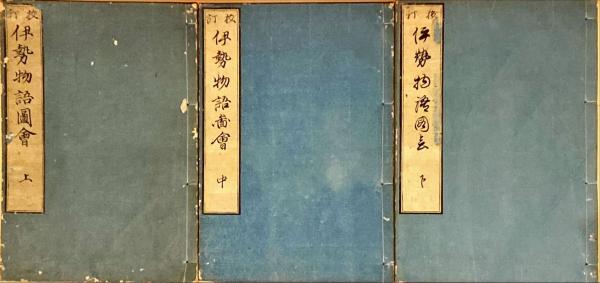 訂校
伊勢物語圖會
上
訂校
伊勢物語啚會
中
訂校
伊勢物語圖会
下